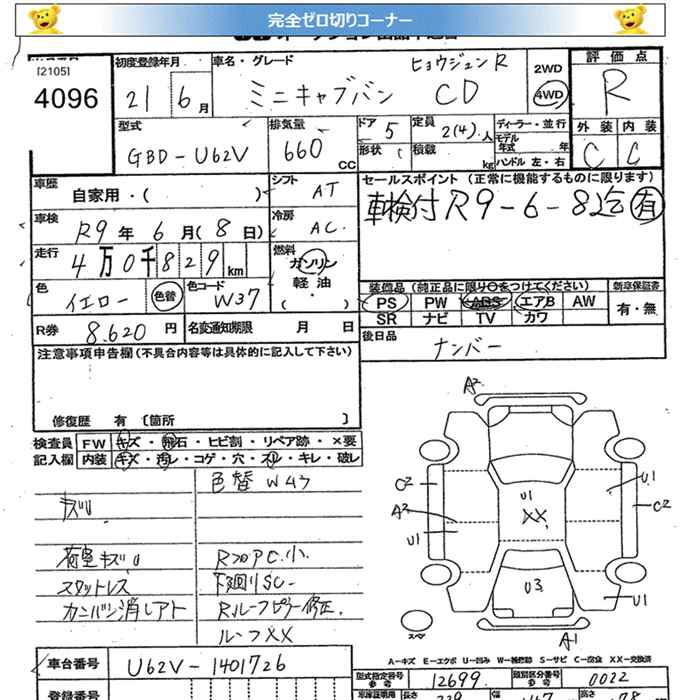 完全ゼロ切りコーナー
[2105]
4096
初度登録年月
21 6 月
車名・グレード
ヒョウジュンR
ミニキャブバン CD
2WD
4WD
評価点
R
外装 内装
C C
型式
GBD-U62V
排気量
660 CC
ドア 5
形状
定員 2(4) 人
積載 kg
ディーラー・並行
モデル年式 年
ハンドル 左・右
車歴 自家用・( )
シフト AT
車検 R9 年 6 月 (8 日)
冷房 AC
走行 4万0千829 km
燃料 ガソリン・軽油 ( ・ )
色 イエロー 色替
色コード W37
R券 8.620 円
名変通知期限 月 日
セールスポイント (正常に機能するものに限ります)
車検付R9-6-8迄 有
装備品 (純正品に限り○をつけてください)
新車保証書
PS PW ABS エアB AW
有・無
SR ナビ TV カワ
後日品
ナンバー
注意事項申告欄(不具合内容等は具体的に記入して下さい)
修復歴 有 〔箇所 〕
検査員記入欄
FW キズ・飛石・ヒビ割・リペア跡・×要
内装 キズ・汚レ・コゲ・穴・スリ・キレ・破レ
色替 W43
キズU
荷室キズU
スタットレス
カンバン消しアト
RフロアC小.
下廻りSC-
Rルーフピラー修正.
ルーフXX
A2
C2
A2
U1
U1
XX
U1
C2
U3
U1
A1
スペア
A-キズ E-エクボ U-凹み W-補修跡 S-サビ C-腐食 XX-交換済
車台番号 U62V-1401726
型式指定番号 12699
類別区分番号 0022
登録番号
長さ